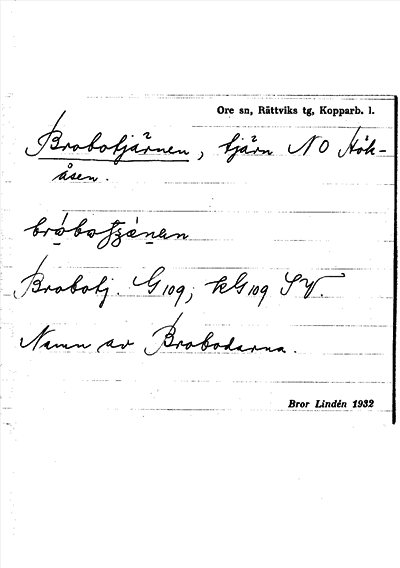 Ore sn, Rättviks tg, Kopparb. l.
Brobotjärnen, tjärn NO Hök-
åsen.
Brobotj. G109; kG109 SV.
Namn av Brobodarna.
Bror Lindén 1932